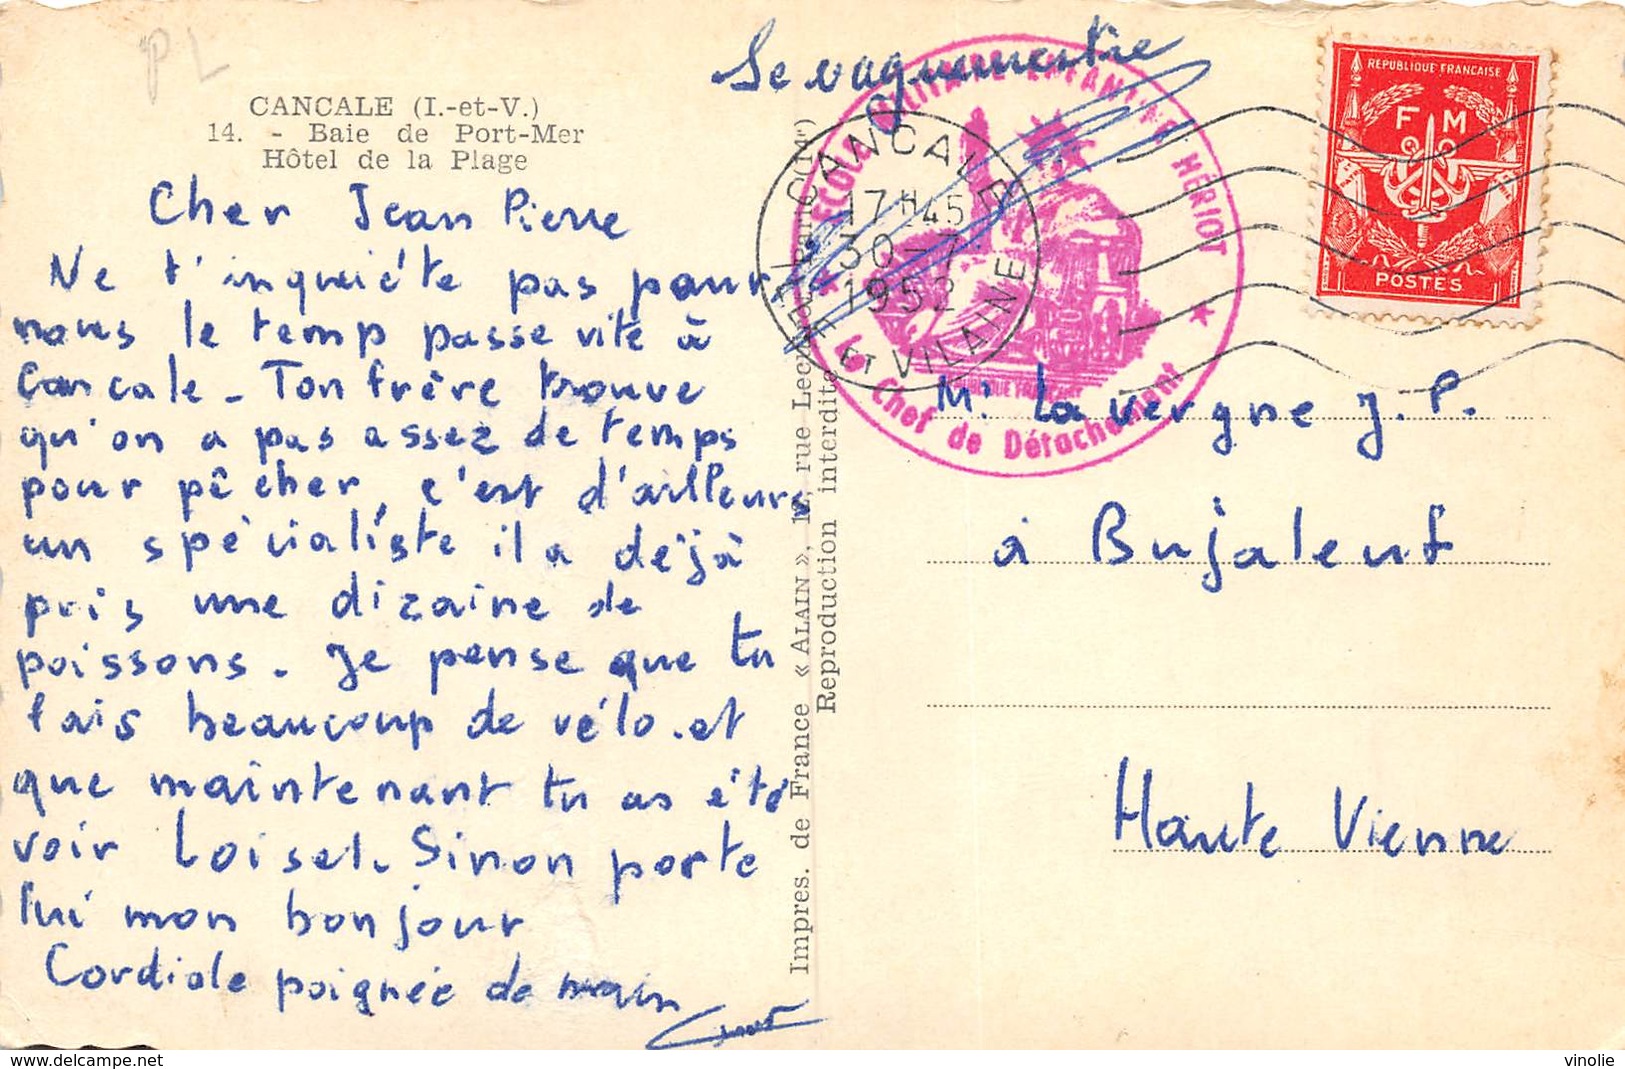 PL
CANCALE (I.-et-V.)
14. - Baie de Port-Mer
Hôtel de la Plage
Cher Jean Pierre
Ne t'inquiéte pas pour
nous le temp passe vite à
Cancale - Ton frère trouve
qu'on a pas assez de temps
pour pêcher, c'est d'ailleurs
un spécialiste il a déjà
pris une dizaine de
poissons. Je pense que tu
fais beaucoup de vélo. et
que maintenant tu as été
voir Loisel. Sinon porte
lui mon bonjour
Cordiale poignée de main
Impres. de France « ALAIN », rue Lec
Reproduction interdite
Le vaguemestre
ECOLE MILITAIRE ENFANTINE HÉRIOT
Le Chef de Détachement
CANCALE
17H45
30-7
1952
ET VILAINE
REPUBLIQUE FRANCAISE
F M
POSTES
Mr Lavergne J.P.
à Bujaleuf
Haute Vienne
vinolie